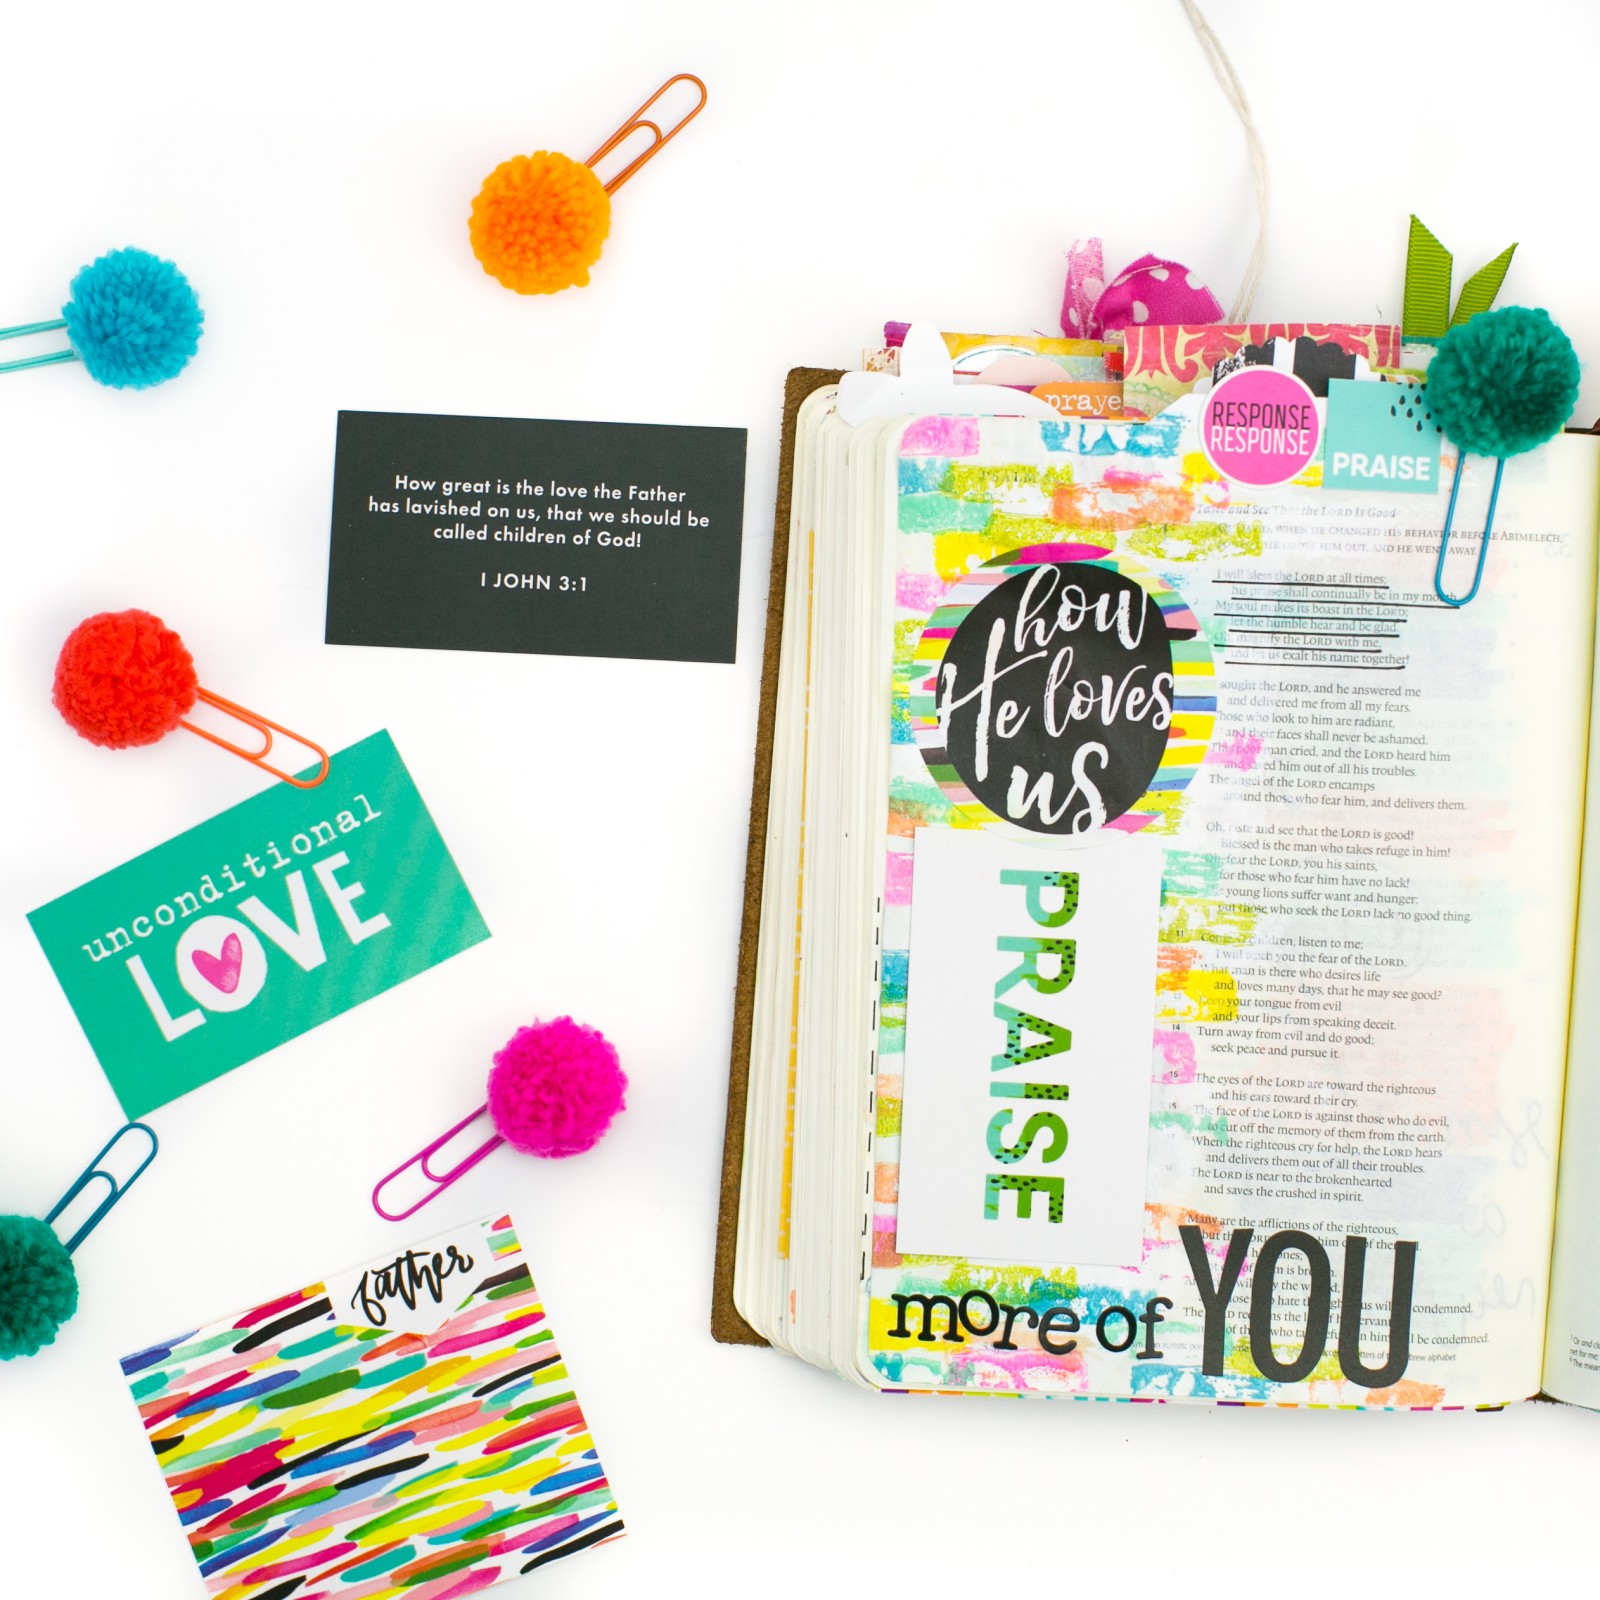 How great is the love the Father
has lavished on us, that we should be
called children of God!
I JOHN 3:1
unconditional
LOVE
father
praye
RESPONSE
RESPONSE
PRAISE
PSALM
Taste and See That the LORD Is Good
WHEN HE CHANGED HIS BEHAVIOR BEFORE ABIMELECH,
HIM OUT, AND HE WENT AWAY.
I will bless the LORD at all times;
his praise shall continually be in my mouth
My soul makes its boast in the LORD;
let the humble hear and be glad
magnify the LORD with me,
and let us exalt his name together!
sought the LORD, and he answered me
and delivered me from all my fears.
Those who look to him are radiant,
and their faces shall never be ashamed.
This poor man cried, and the LORD heard him
and saved him out of all his troubles.
The angel of the LORD encamps
around those who fear him, and delivers them.
Oh, taste and see that the LORD is good!
Blessed is the man who takes refuge in him!
Oh, fear the LORD, you his saints,
for those who fear him have no lack!
young lions suffer want and hunger;
but those who seek the LORD lack no good thing.
11 Come, children, listen to me;
I will teach you the fear of the LORD.
What man is there who desires life
and loves many days, that he may see good?
13 Keep your tongue from evil
and your lips from speaking deceit.
14 Turn away from evil and do good;
seek peace and pursue it.
15 The eyes of the LORD are toward the righteous
and his ears toward their cry.
The face of the LORD is against those who do evil,
to cut off the memory of them from the earth.
When the righteous cry for help, the LORD hears
and delivers them out of all their troubles.
The LORD is near to the brokenhearted
and saves the crushed in spirit.
Many are the afflictions of the righteous,
but the LORD him out of them
condemned.
be condemned.
how
He loves
us
PRAISE
more of YOU